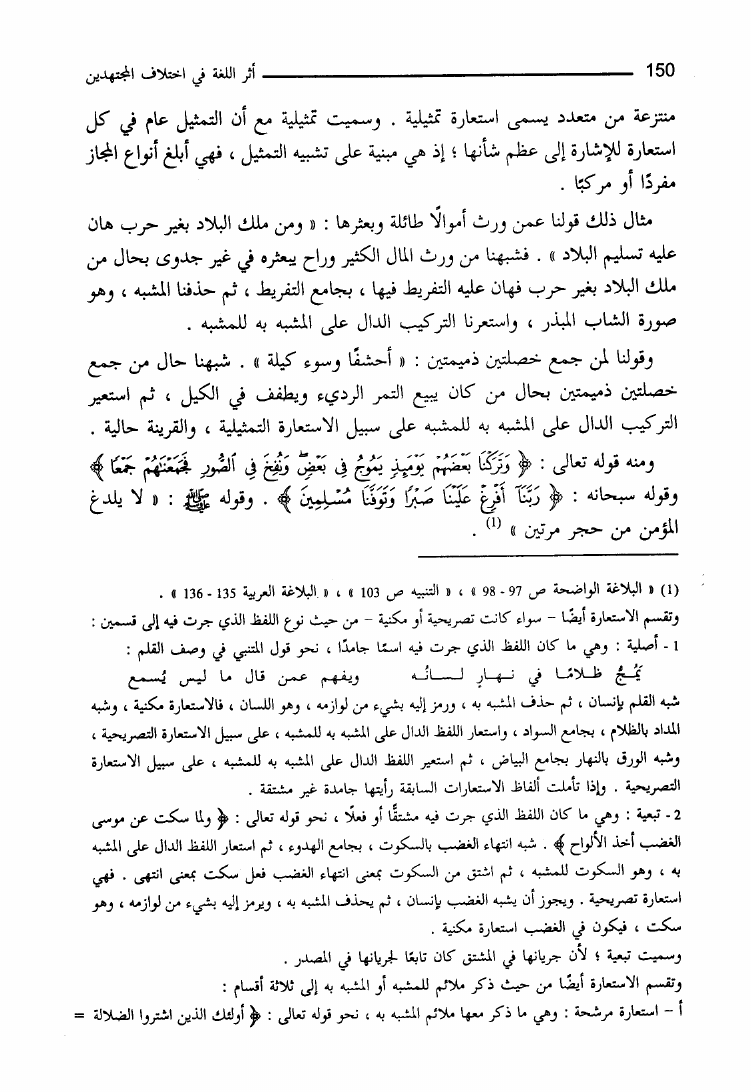 150 أثر اللغة في اختلاف المجتهدين
منتزعة من متعدد يسمى استعارة تمثيلية . وسميت تمثيلية مع أن التمثيل عام في كل
استعارة للإشارة إلى عظم شأنها ؛ إذ هي مبنية على تشبيه التمثيل ، فهي أبلغ أنواع المجاز
مفردًا أو مركبًا .
مثال ذلك قولنا عمن ورث أموالًا طائلة وبعثرها : « ومن ملك البلاد بغير حرب هان
عليه تسليم البلاد » . فشبهنا من ورث المال الكثير وراح يبعثره في غير جدوى بحال من
ملك البلاد بغير حرب فهان عليه التفريط فيها ، بجامع التفريط ، ثم حذفنا المشبه ، وهو
صورة الشاب المبذر ، واستعرنا التركيب الدال على المشبه به للمشبه .
وقولنا لمن جمع خصلتين ذميمتين : « أحشفًا وسوء كيلة » . شبهنا حال من جمع
خصلتين ذميمتين بحال من كان يبيع التمر الرديء ويطفف في الكيل ، ثم استعير
التركيب الدال على المشبه به للمشبه على سبيل الاستعارة التمثيلية ، والقرينة حالية .
ومنه قوله تعالى : ﴿ وَتَرَكْنَا بَعْضَهُمْ يَوْمَئِذٍ يَمُوجُ فِي بَعْضٍ وَنُفِخَ فِي ٱلصُّورِ فَجَمَعْنَٰهُمْ جَمْعًا ﴾
وقوله سبحانه : ﴿ رَبَّنَآ أَفْرِغْ عَلَيْنَا صَبْرًا وَتَوَفَّنَا مُسْلِمِينَ ﴾ . وقوله ﷺ : « لا يلدغ
المؤمن من حجر مرتين » (1) .
(1) « البلاغة الواضحة ص 97 - 98 » ، « التنبيه ص 103 » ، « البلاغة العربية 135 - 136 » .
وتقسم الاستعارة أيضًا – سواء كانت تصريحية أو مكنية – من حيث نوع اللفظ الذي جرت فيه إلى قسمين :
1 - أصلية : وهي ما كان اللفظ الذي جرت فيه اسمًا جامدًا ، نحو قول المتنبي في وصف القلم :
يَمُجُّ ظلامًا في نهارٍ لسانُه ويفهم عمن قال ما ليس يُسمع
شبه القلم بإنسان ، ثم حذف المشبه به ، ورمز إليه بشيء من لوازمه ، وهو اللسان ، فالاستعارة مكنية ، وشبه
المداد بالظلام ، بجامع السواد ، واستعار اللفظ الدال على المشبه به للمشبه ، على سبيل الاستعارة التصريحية ،
وشبه الورق بالنهار بجامع البياض ، ثم استعير اللفظ الدال على المشبه به للمشبه ، على سبيل الاستعارة
التصريحية . وإذا تأملت ألفاظ الاستعارات السابقة رأيتها جامدة غير مشتقة .
2 - تبعية : وهي ما كان اللفظ الذي جرت فيه مشتقًّا أو فعلًا ، نحو قوله تعالى : ﴿ ولما سكت عن موسى
الغضب أخذ الألواح ﴾ . شبه انتهاء الغضب بالسكوت ، بجامع الهدوء ، ثم استعار اللفظ الدال على المشبه
به ، وهو السكوت للمشبه ، ثم اشتق من السكوت بمعنى انتهاء الغضب فعل سكت بمعنى انتهى . فهي
استعارة تصريحية . ويجوز أن يشبه الغضب بإنسان ، ثم يحذف المشبه به ، ويرمز إليه بشيء من لوازمه ، وهو
سكت ، فيكون في الغضب استعارة مكنية .
وسميت تبعية ؛ لأن جريانها في المشتق كان تابعًا لجريانها في المصدر .
وتقسم الاستعارة أيضًا من حيث ذكر ملائم للمشبه أو المشبه به إلى ثلاثة أقسام :
أ – استعارة مرشحة : وهي ما ذكر معها ملائم المشبه به ، نحو قوله تعالى : ﴿ أولئك الذين اشتروا الضلالة =